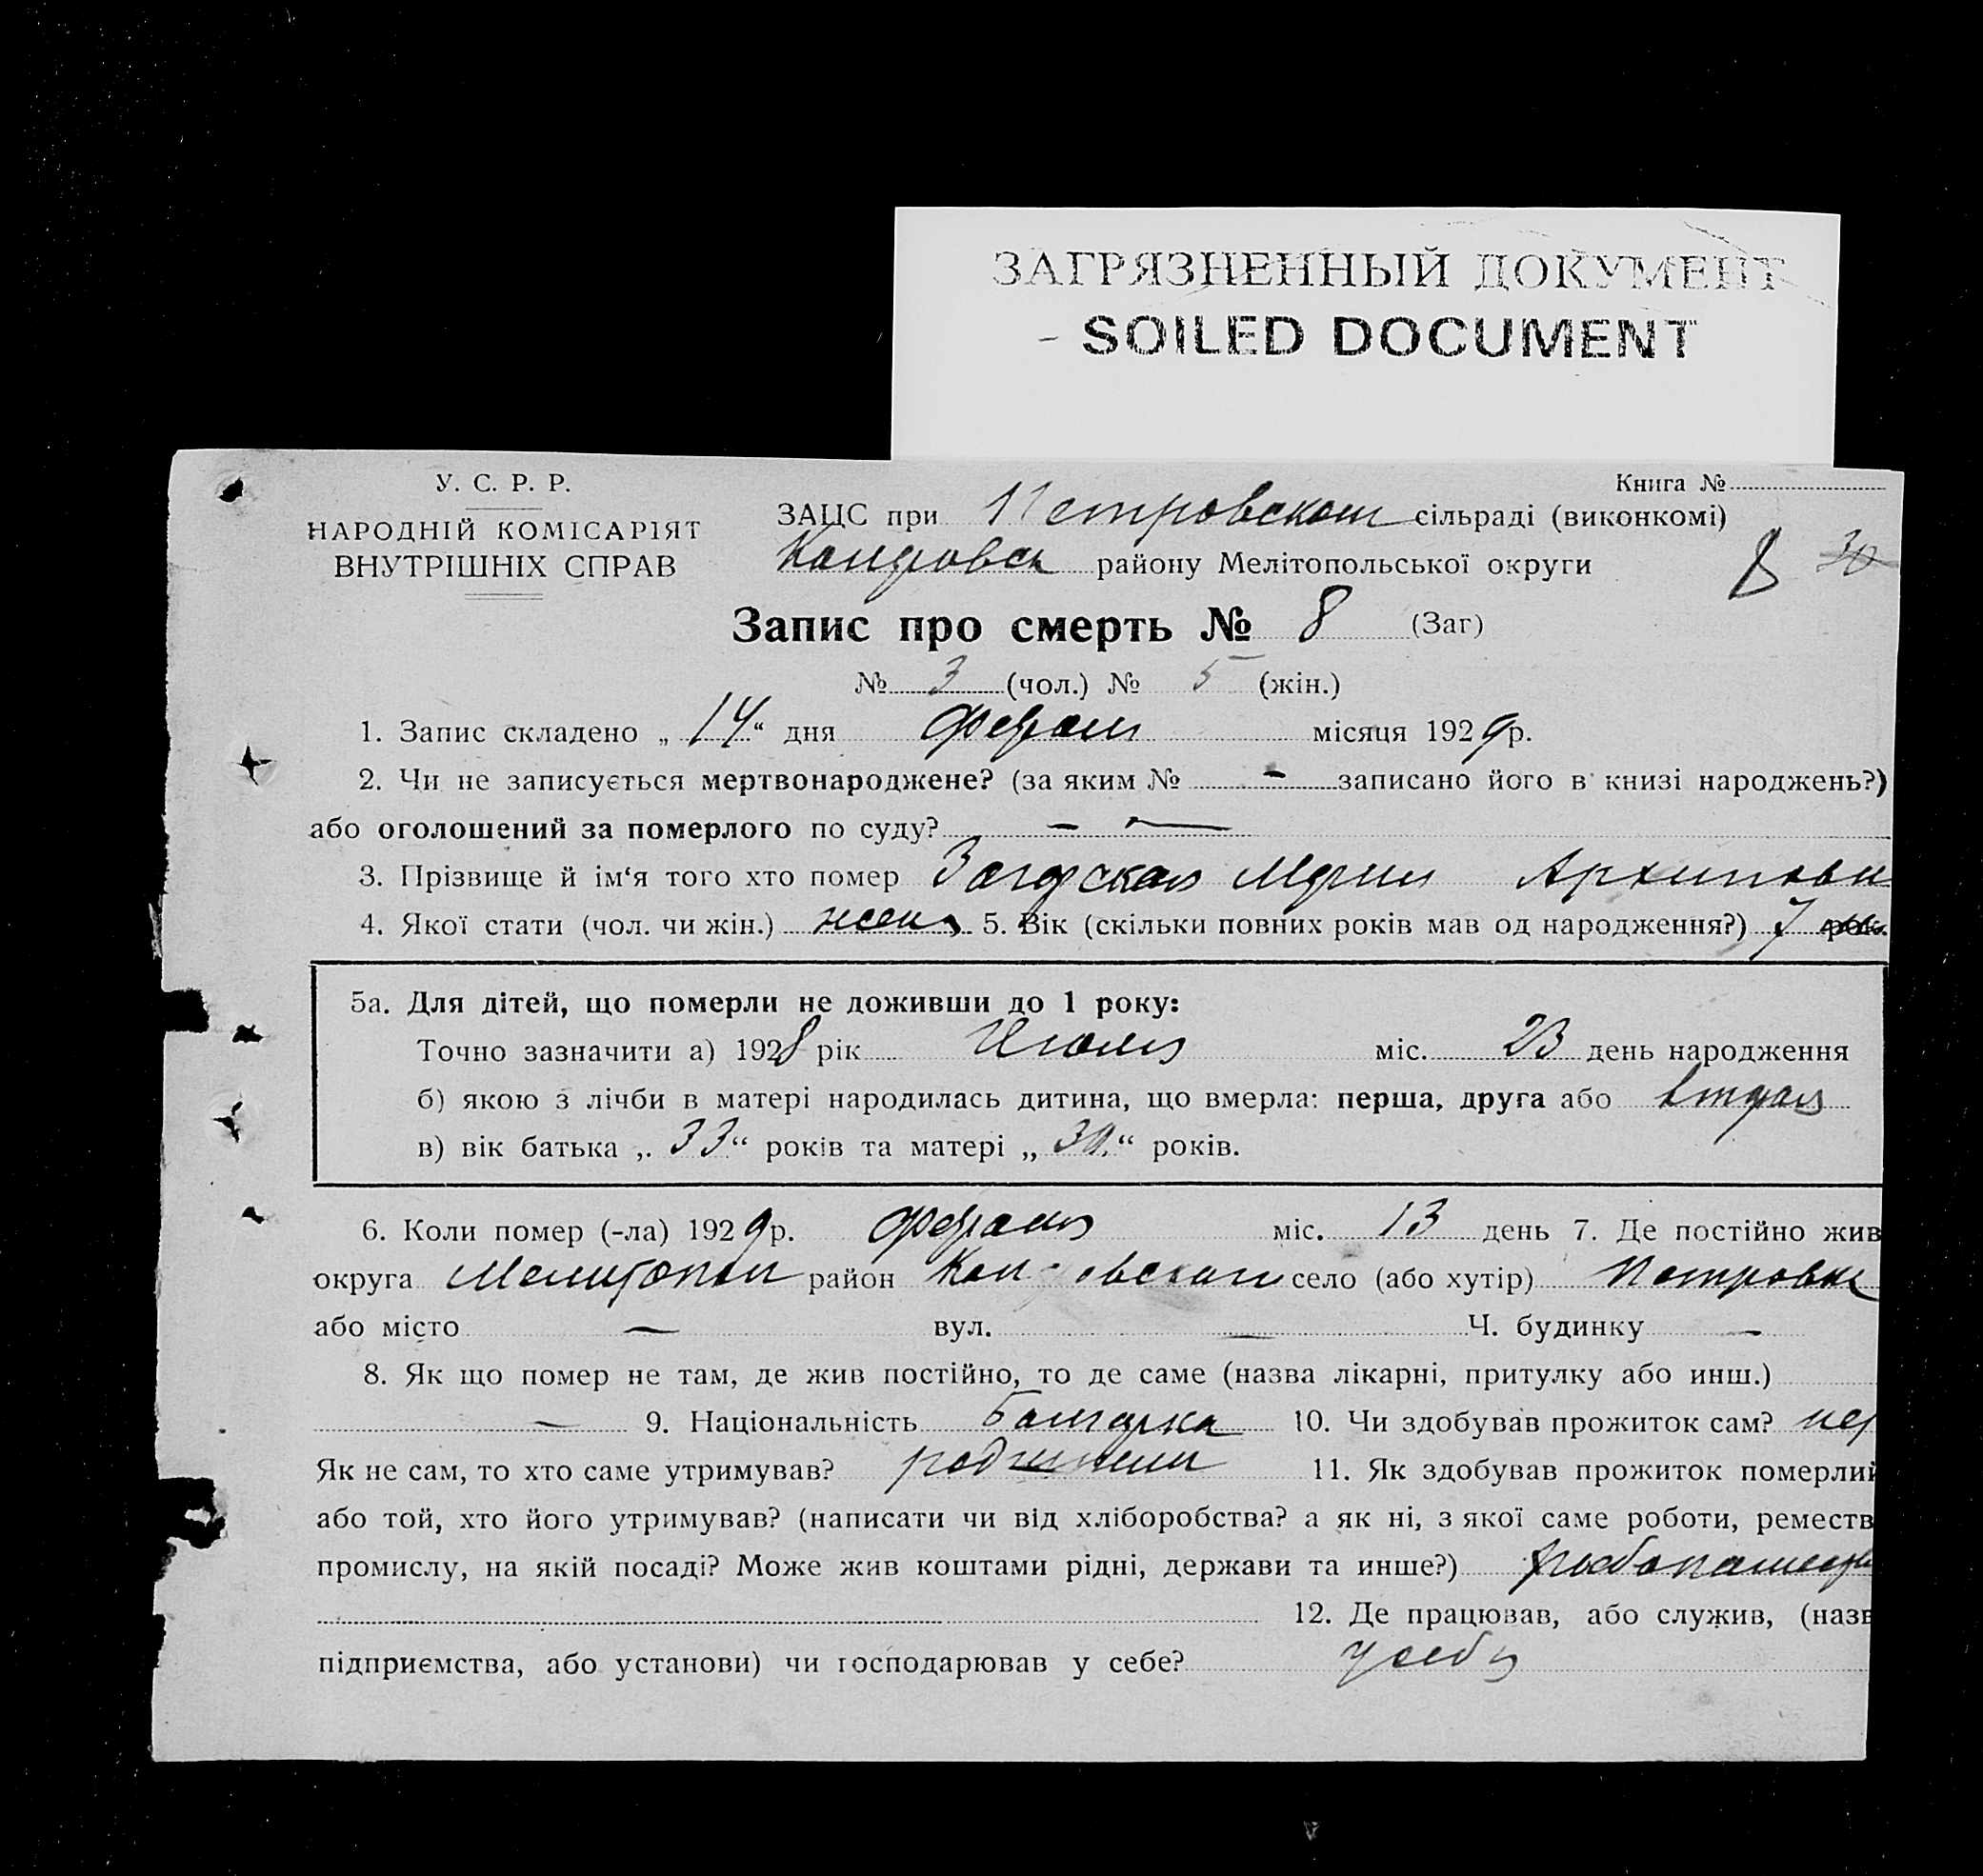 ЗАГРЯЗНЕННЫЙ ДОКУМЕНТ
- SOILED DOCUMENT
У. С. Р. Р.
НАРОДНІЙ КОМІСАРІЯТ
ВНУТРІШНІХ СПРАВ
Книга №
ЗАЦС при Петровском сільраді (виконкомі)
району Мелітопольської округи
8 30
Запис про смерть № 8 (Заг)
№ 3 (чол.) № 5 (жін.)
1. Запис складено „ 14 “ дня Февраля місяця 1929 р.
2. Чи не записується мертвонароджене? (за яким № - записано його в книзі народжень?)
або оголошений за померлого по суду? - -
3. Прізвище й ім‘я того хто помер Мария Архиповн
4. Якої стати (чол. чи жін.) жен. 5. Вік (скільки повних років мав од народження?) 7
5а. Для дітей, що померли не доживши до 1 року:
Точно зазначити а) 1928 рік Июля міс. 23 день народження
б) якою з лічби в матері народилась дитина, що вмерла: перша, друга або вторая
в) вік батька „ 33 “ років та матері „ 30. “ років.
6. Коли помер (-ла) 1929 р. Февраля міс. 13 день 7. Де постійно жив
округа Мелитопол район село (або хутір) Петровка
або місто — вул. — Ч. будинку —
8. Як що помер не там, де жив постійно, то де саме (назва лікарні, притулку або инш.)
— 9. Національність Болгарка 10. Чи здобував прожиток сам? нет
Як не сам, то хто саме утримував? родители 11. Як здобував прожиток померлий
або той, хто його утримував? (написати чи від хліборобства? а як ні, з якої саме роботи, реместв
промислу, на якій посаді? Може жив коштами рідні, держави та инше?) хлебопашеств
12. Де працював, або служив, (назв
підприємства, або установи) чи господарював у себе? у себя